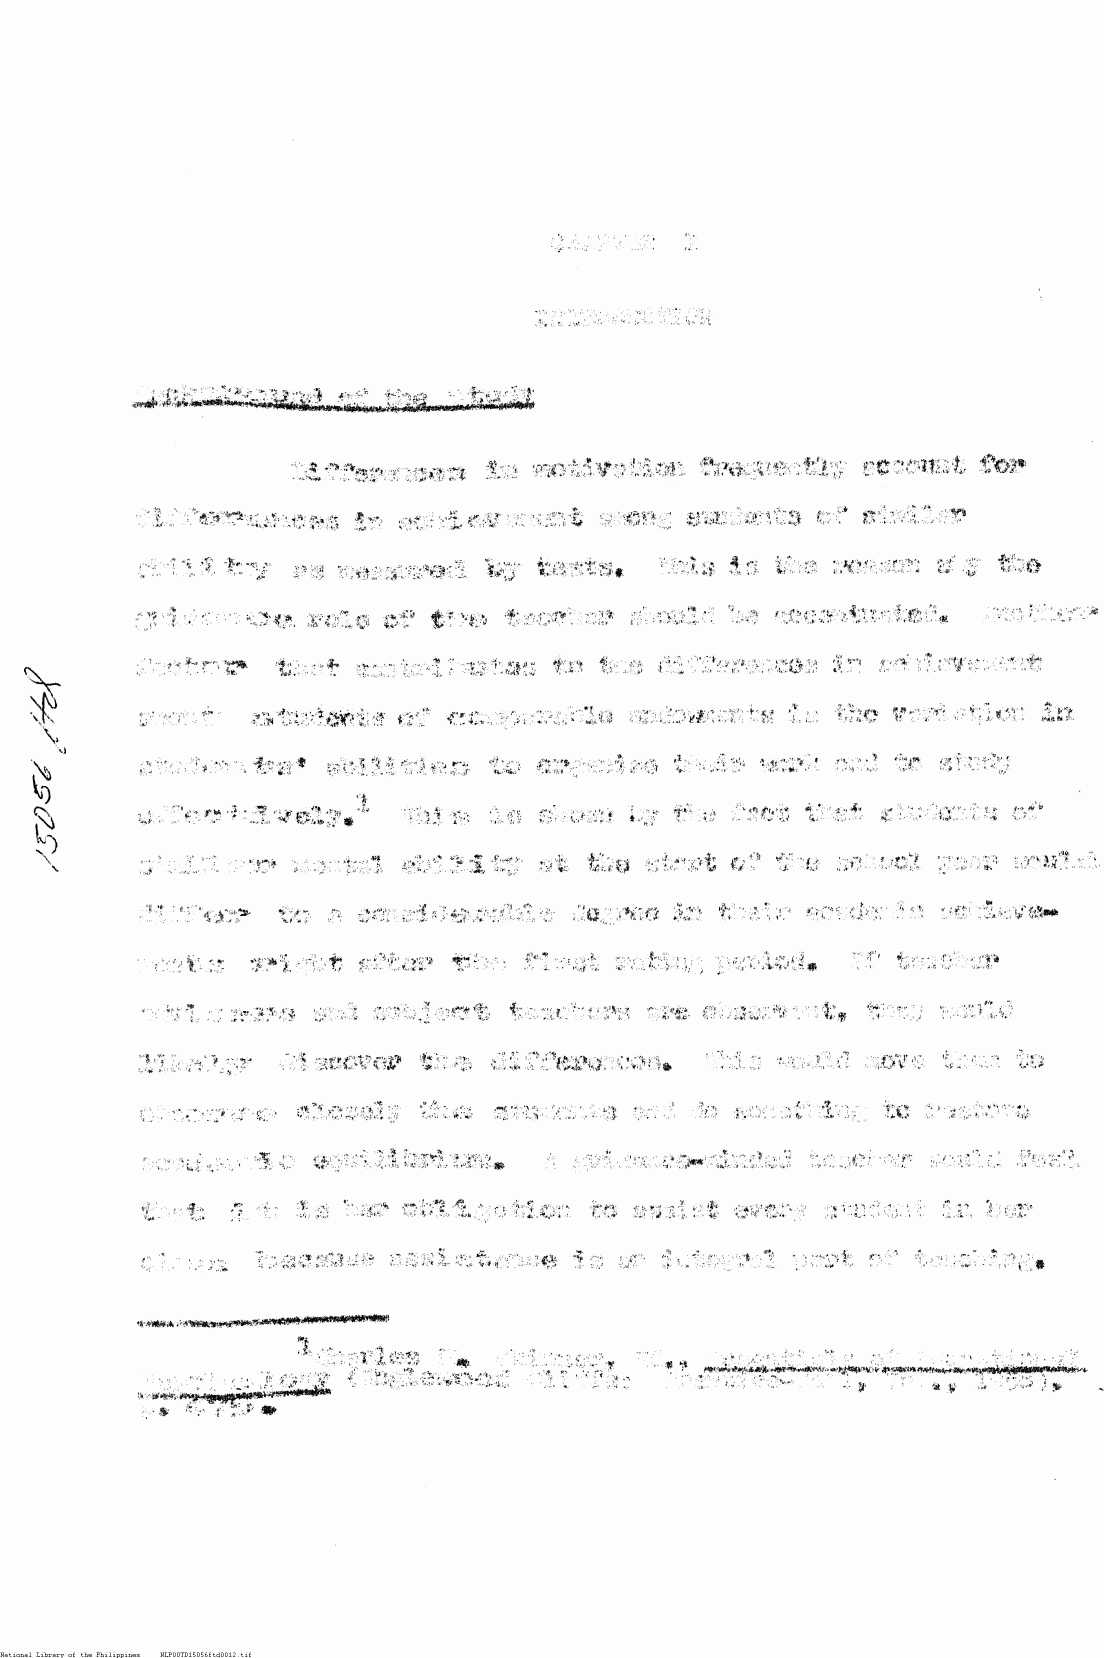 CHAPTER I
INTRODUCTION
Background of the Study
Differences in motivation frequently account for
differences in achievement among students of similar
ability as measured by tests. This is the reason why the
guidance role of the teacher should be accentuated. Another
factor that contributes to the differences in achievement
among students of comparable endowments is the variation in
students' abilities to organize their work and to study
effectively.1 This is shown by the fact that students of
similar mental ability at the start of the school year would
differ to a considerable degree in their academic achieve-
ments right after the first rating period. If teacher
advisers and subject teachers are observant, they would
likely discover the differences. This would move them to
observe closely the students and do something to restore
academic equilibrium. A guidance-minded teacher would feel
that it is her obligation to assist every student in her
class because assistance is an integral part of teaching.
1Charles E. Skinner, Ed., Essentials of
(Englewood Cliffs:
p.
15056
National Library of the Philippines NLP00TD15056ftd0012.tif